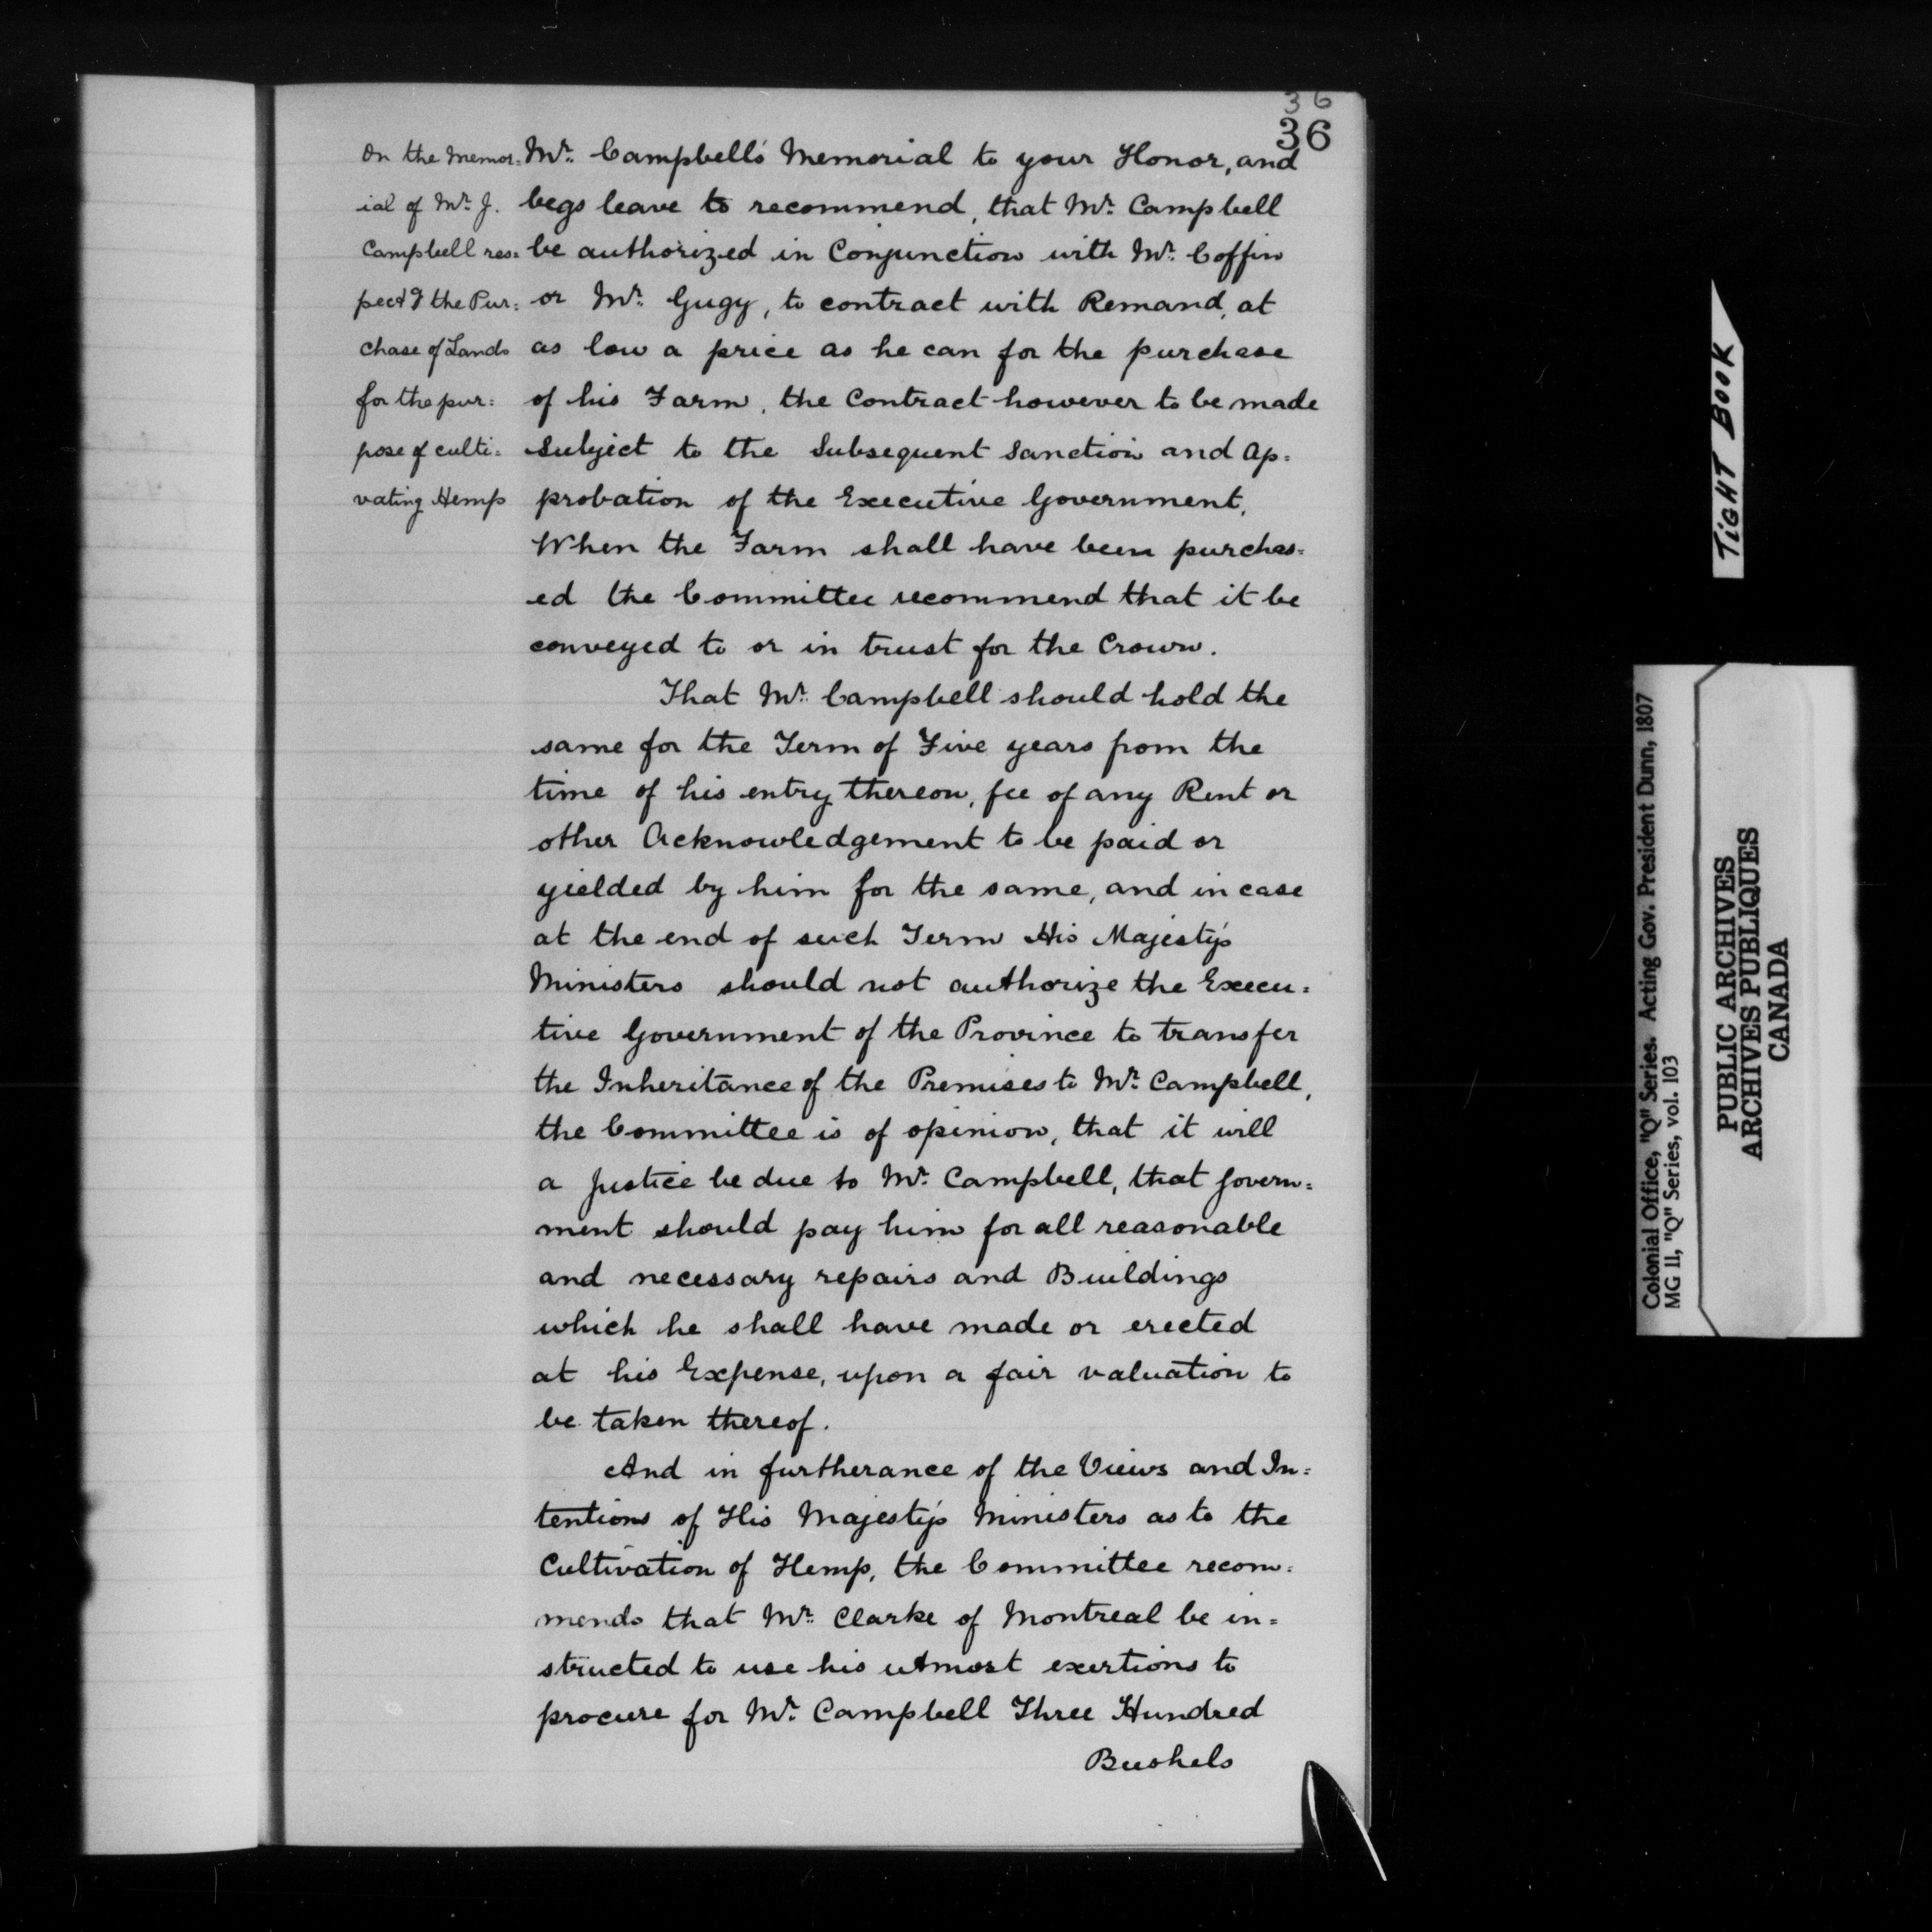 36
36
On the Memor=
ial of Mr. J.
Campbell res=
pectg the Pur=
chase of Lands
for the pur=
pose of culti=
vating Hemp
Mr. Campbell's Memorial to your Honor, and
begs leave to recommend, that Mr. Campbell
be authorized in Conjunction with Mr. Coffin
or Mr. Gugy, to contract with Remand, at
as low a price as he can for the purchase
of his Farm, the Contract however to be made
subject to the Subsequent Sanction and Ap=
probation of the Executive Government.
When the Farm shall have been purchas=
ed the Committee recommend that it be
conveyed to or in trust for the Crown.
That Mr. Campbell should hold the
same for the Term of Five years from the
time of his entry thereon, fee of any Rent or
other Acknowledgement to be paid or
yielded by him for the same, and in case
at the end of such Term His Majesty's
Ministers should not authorize the Execu=
tive Government of the Province to transfer
the Inheritance of the Premises to Mr. Campbell,
the Committee is of opinion, that it will
a justice be due to Mr. Campbell, that Govern=
ment should pay him for all reasonable
and necessary repairs and Buildings
which he shall have made or erected
at his Expense, upon a fair valuation to
be taken thereof.
And in furtherance of the Views and In=
tentions of His Majesty's Ministers as to the
Cultivation of Hemp, the Committee recom=
mends that Mr. Clarke of Montreal be in=
structed to use his utmost exertions to
procure for Mr. Campbell Three Hundred
Bushels
TIGHT BOOK
Colonial Office, "Q" Series. Acting Gov. President Dunn, 1807
MG 11, "Q" Series, vol. 103
PUBLIC ARCHIVES
ARCHIVES PUBLIQUES
CANADA